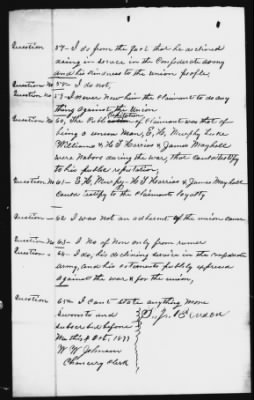 Question 57- I do from the fact that he declined
going in service in the Confederate army
and his kindness to the union people,
Question No 58- I do not,
Question No 59- I never now him the claimant to do any
thing against the Union
Question No 60, The Public reputation of Claimant was that of
being a union man, E, H, Murphy Luke
Williams & H F Harris & James Mayhall
were nabors during the war, that could testify
to his public reputation,
Question No 61- E, H, Murphy H F Harris & James Mayhall
could testify to the claimants loyalty
Question - 62 I was not an adherent of the union cause
Question No 63- I no of non only from rumer
Question - 64- I do, his declining service in the confederate
army, and his sentaments publicly expressed
against the war & for the union,
Question 65- I cant state anything more
Sworn to and
subscribed before
me this 4 Oct, 1877
W W Johnson
Chancery Clerk